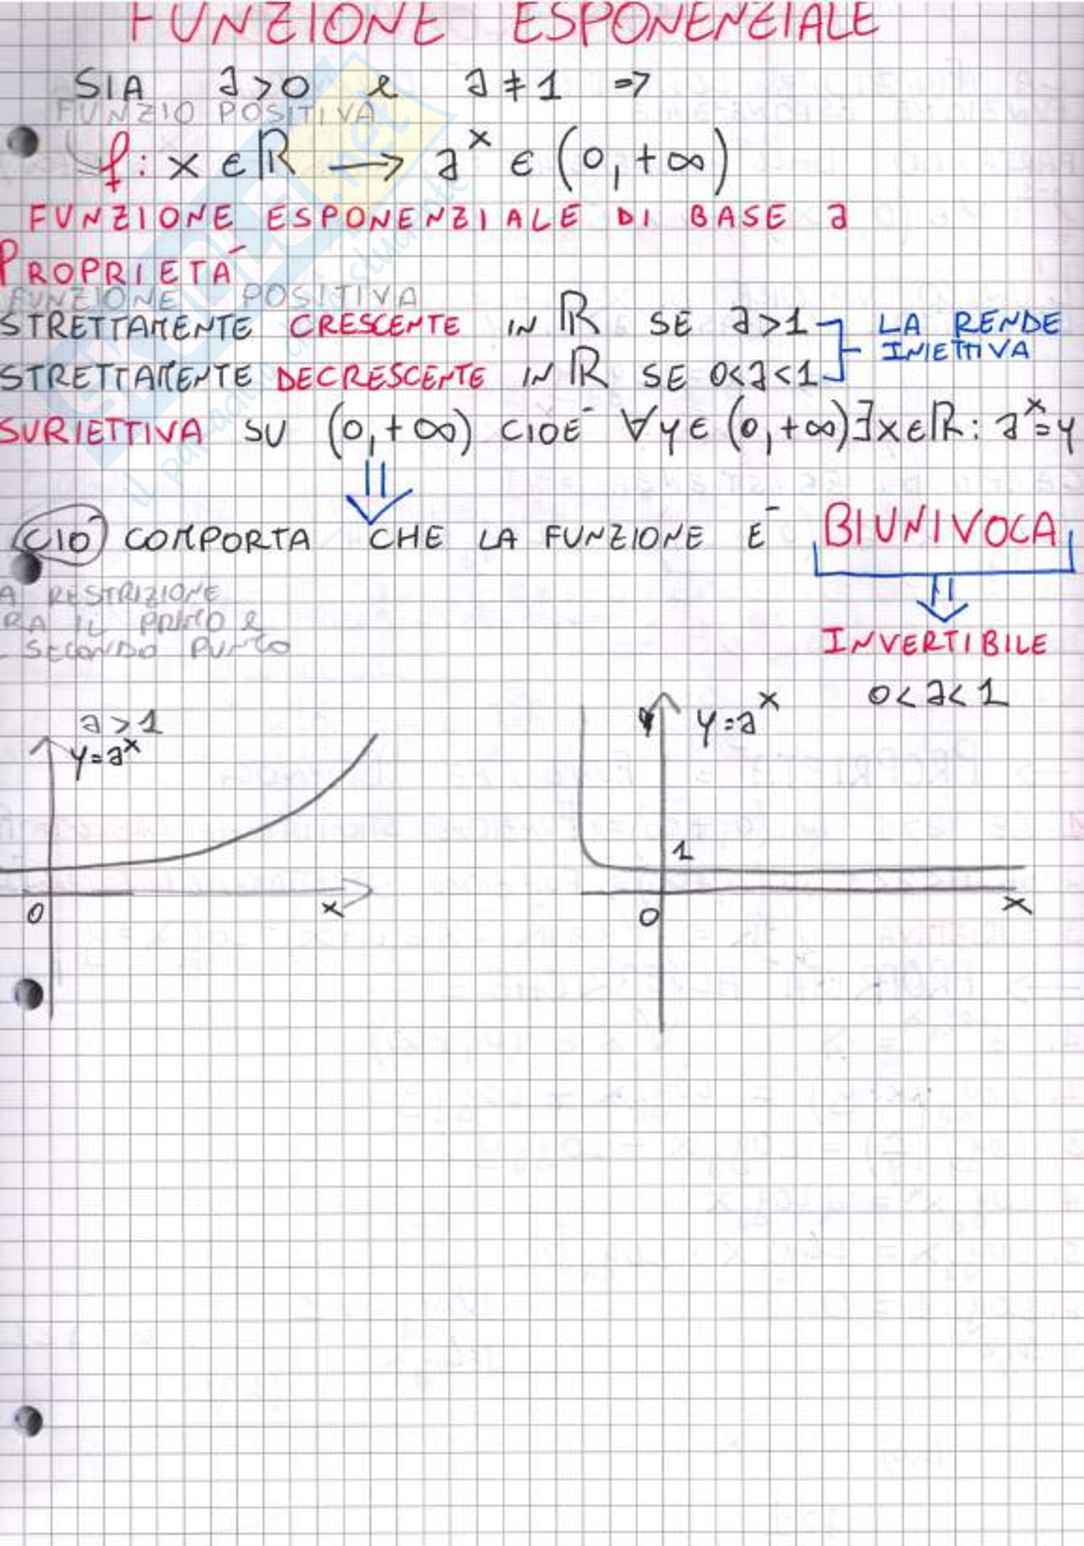 FUNZIONE ESPONENZIALE
SIA a>0 e a≠1 =>
FUNZIO POSITIVA
f: x ∈ ℝ → a^x ∈ (0,+∞)
FUNZIONE ESPONENZIALE DI BASE a
PROPRIETÀ
FUNZIONE POSITIVA
STRETTAMENTE CRESCENTE IN ℝ SE a>1
STRETTAMENTE DECRESCENTE IN ℝ SE 0<a<1
LA RENDE
INIETTIVA
SURIETTIVA SU (0,+∞) CIOÈ ∀y∈(0,+∞)∃x∈ℝ: a^x=y
CIÒ COMPORTA CHE LA FUNZIONE È BIUNIVOCA
A RESTRIZIONE
RA IL PRIMO E
SECONDO PUNTO
INVERTIBILE
a>1
y=a^x
0
x
0<a<1
y=a^x
1
0
x